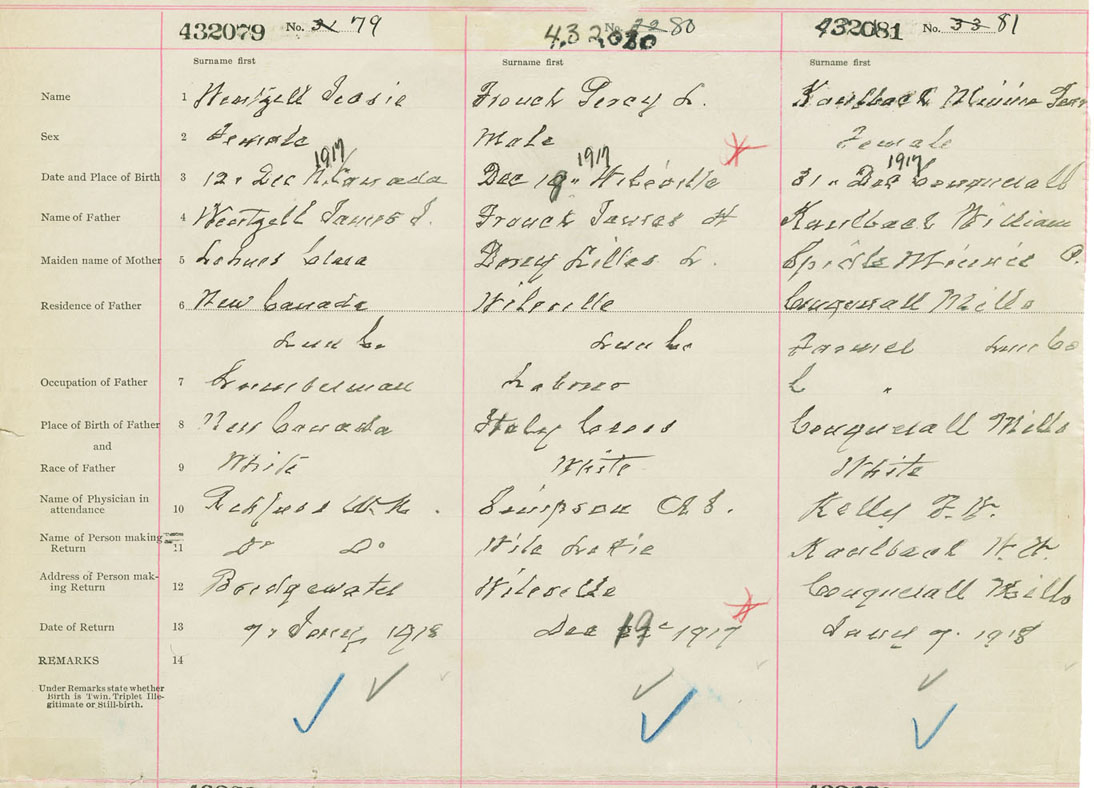 432079 No. 31 79
432080 No. 32 80
432081 No. 33 81
Surname first Surname first Surname first
Name 1 Wentzell Jessie Frauch Percy L. Kaulback Minnie
Sex 2 Female Male Female
Date and Place of Birth 3 12 " Dec 1917 N. Canada Dec 19 " 1917 Wileville 31 " Dec 1917 Conquerall
Name of Father 4 Wentzell James Frauch James H Kaulback William
Maiden name of Mother 5 Clara L. Spidle Minnie P.
Residence of Father 6 New Canada Wileville Conquerall Mills
Lun Co. Lun Co Farmer Lun Co
Occupation of Father 7 Lumberman Labour "
Place of Birth of Father 8 New Canada Italy Cross Conquerall Mills
and
Race of Father 9 White White White
Name of Physician in
attendance 10 W. Simpson Kelly F. W.
Name of Person making
Return 11 Do Do Wile Kaulback W. W.
Address of Person mak-
ing Return 12 Bridgewater Wileville Conquerall Mills
Date of Return 13 7, Jany, 1918 Dec 19 1917 Jany 7. 1918
REMARKS 14
Under Remarks state whether
Birth is Twin. Triplet Ille-
gitimate or Still-birth.